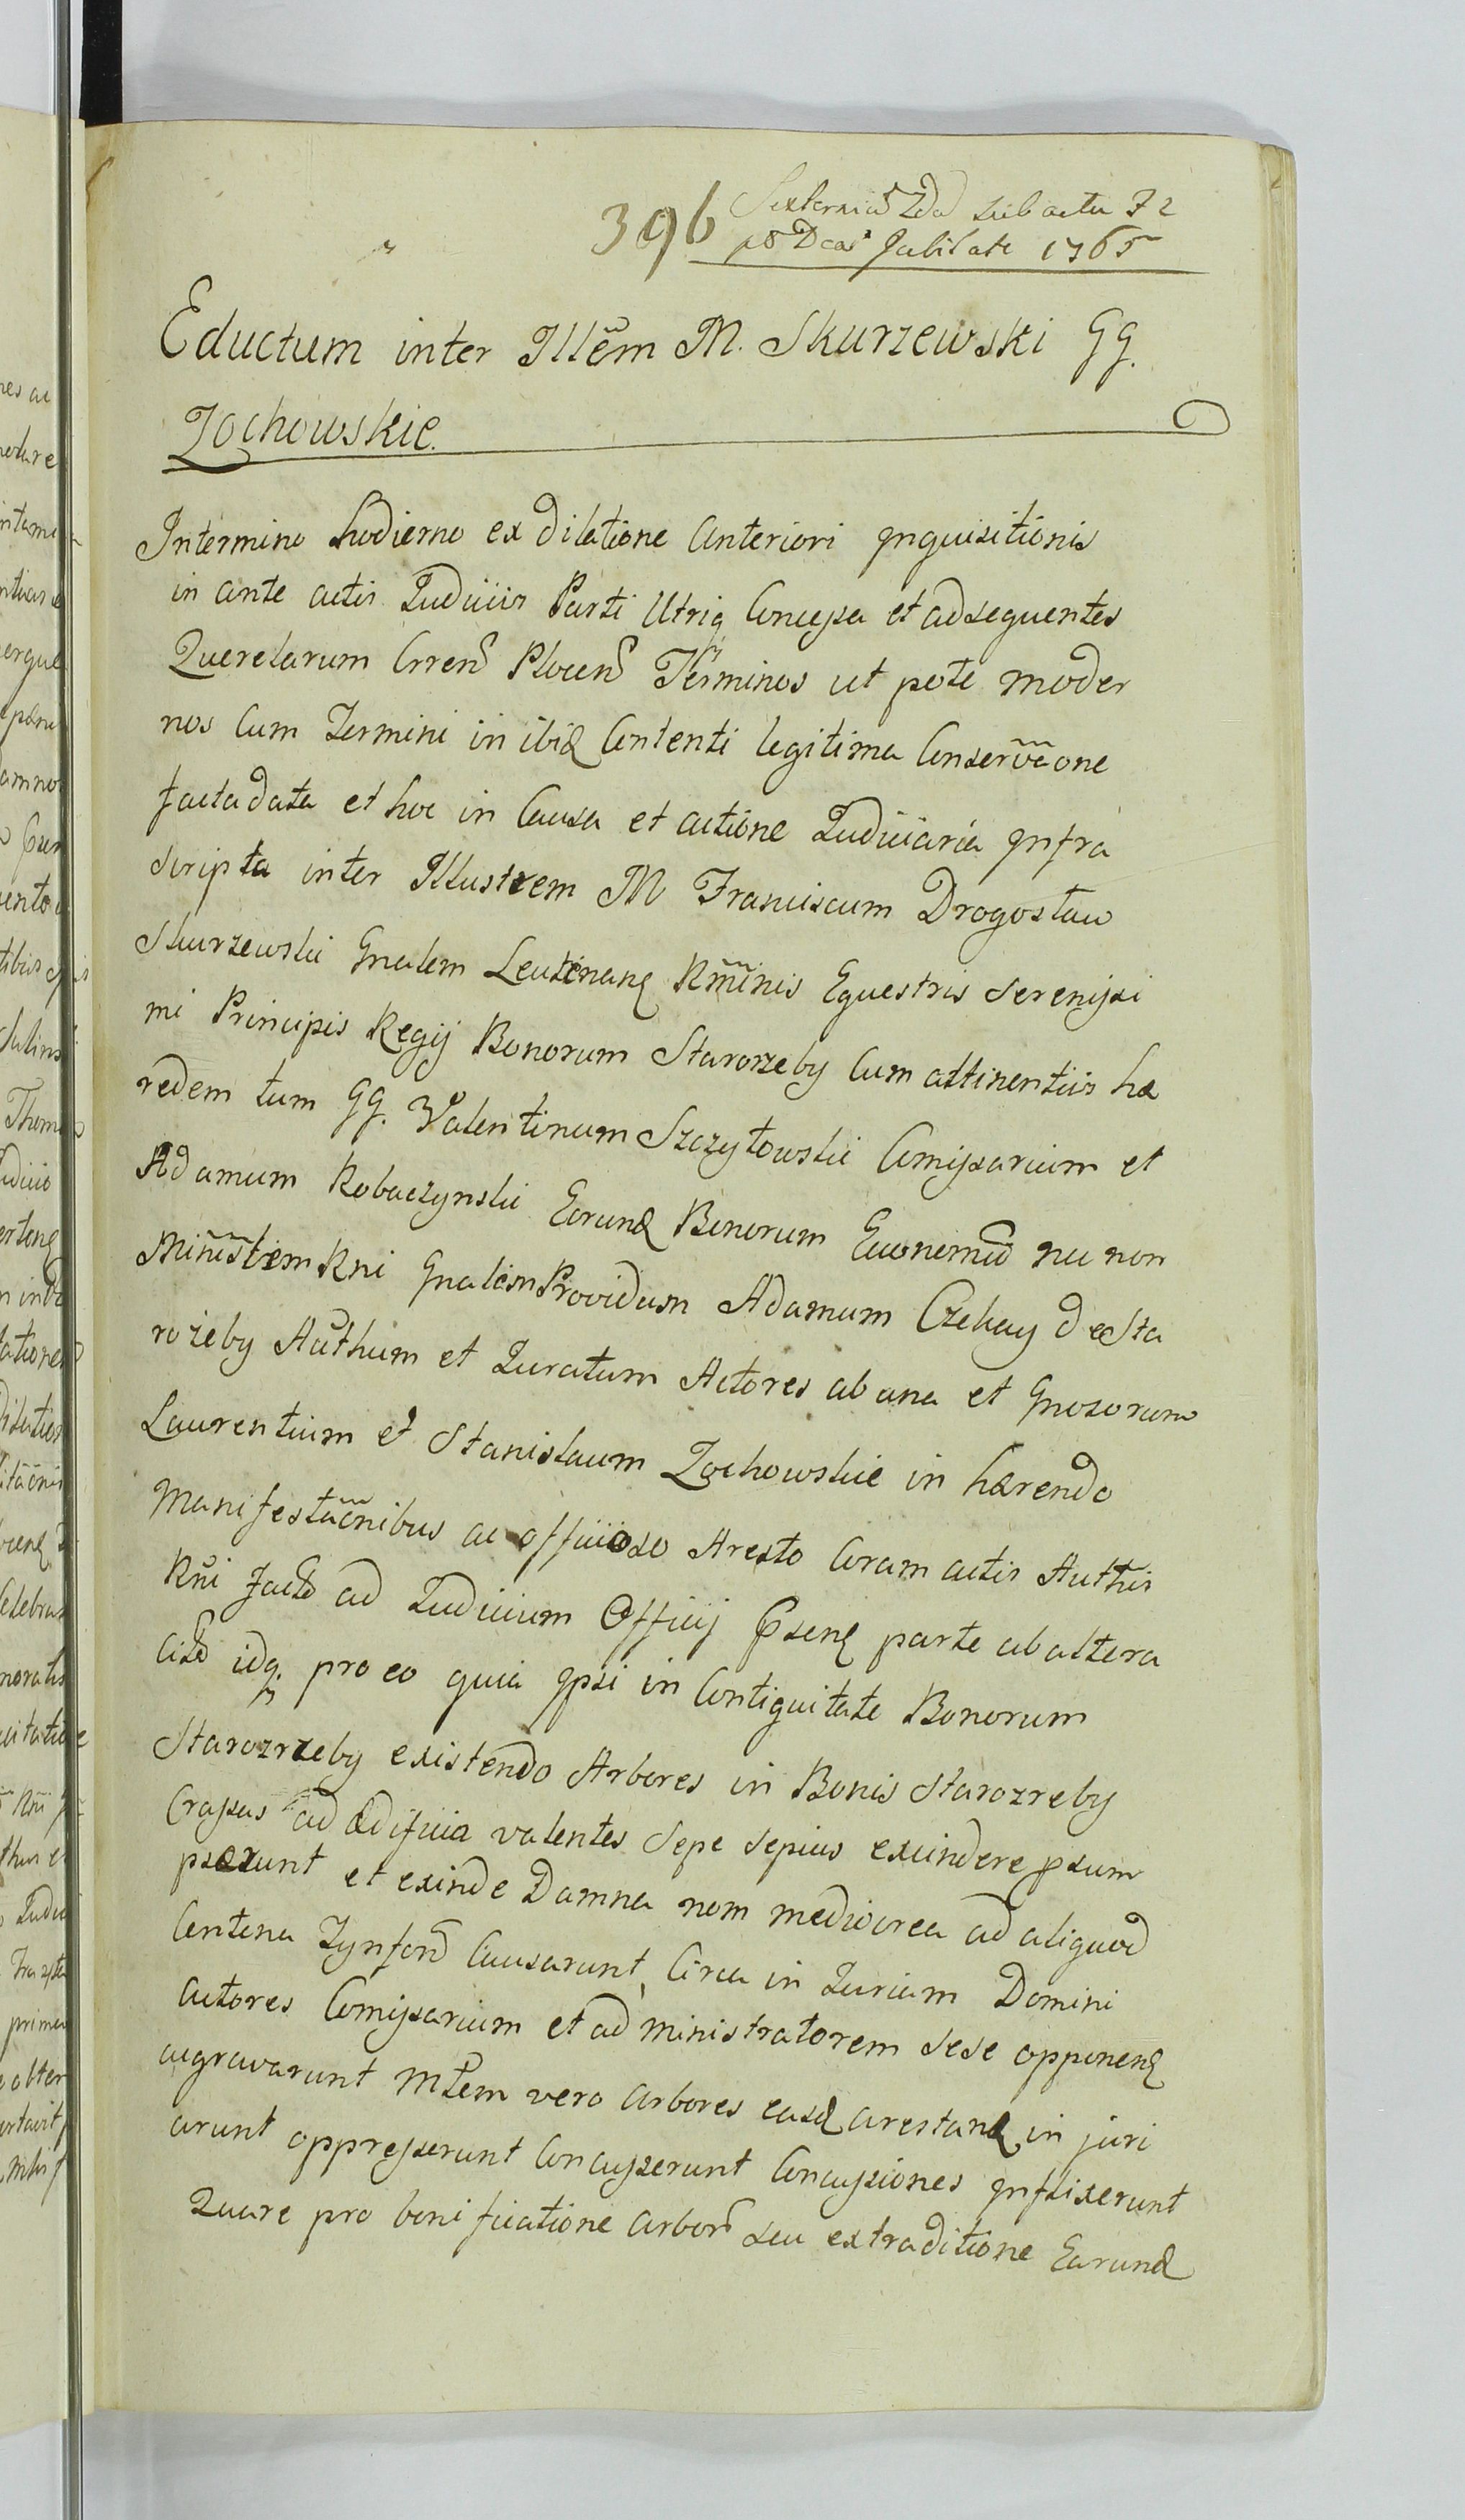 396 Sexternus 2da sub actu 72
Jubilate 1765
Eductum inter Illem̃ M. Skurzewski GG.
Zochowskie.
Intermino hodierno ex dilatione Anteriori Inquisitionis
in ante actis Judiciis Parti Utriq Concessa et adsequentes
Querelarum Crren Plocen Terminos ut pote moder
nos Cum Termini in ibiq Contenti legitima Conserṽaone
facta data et hoc in Causa et actione Judiciaria Infra
scripta inter Illustrem M Franciscum Drogostaw
Skurzewski Gnalem Leutenanq Rm̃inis Equestris Serenissi
mi Principis Regij Bonorum Starorzeby Cum attinentiis hæ
redem tum GG. Valentinum Szczytowski Comissarium et
Adamum Robaczynski Eorunq Bonorum Economū nec non
Ministrem Rni Gnalem Providum Adamum Czekay de Sta
rozeby Authum et Juratum Actores ab una et Gnosorum
Laurentium et Stanislaum Zochowskie in hærendo
Manifestac̃nibus ac officioso Aresto Coram actis Authis
Rñi facto ad Judicium Officij psenq parte ab altera
Citō idq. pro eo quia Ipsi in Contiguitate Bonorum
Starozrzeby existendo Arbores in Bonis Starozreby
Crassas ad ædificia valentes Sepe Sepius excindere psum
pserunt et exinde Damna non mediocrea ad aliquod
Centena Tynforū Causarunt, Circa in Jurium Domini
Actores Comissarium et administratorem sese opponenq
aggravarunt Mtem vero Arbores easq arestanq in juri
arunt oppresserunt Concusserunt Concussiones Inflixerunt
Quare pro bonificatione Arborū seu extraditione Earunq